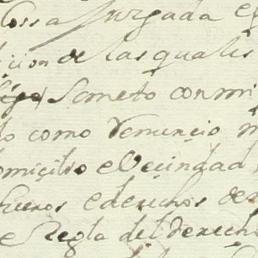 cossa Jusgada e
cion de las quales
someto con mi
lo como Renuncio m
omicilio e Vecindad
fueros e derechos de
e Regla del derech